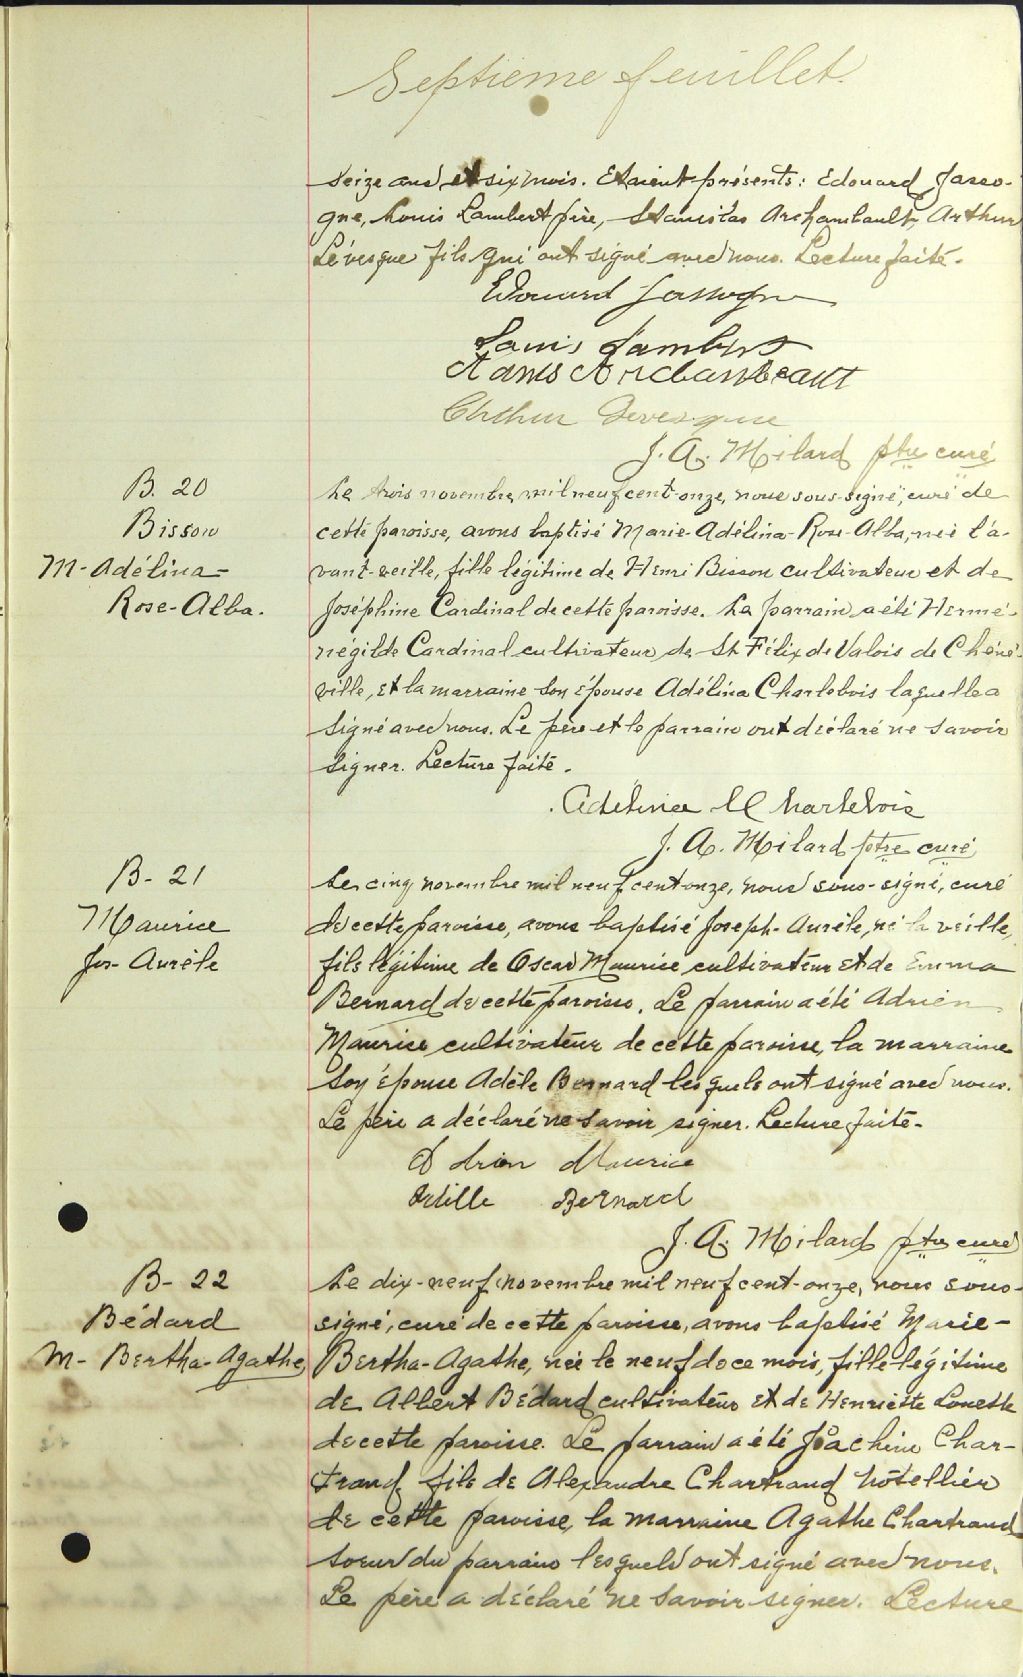 Septième feuillet.
seize ans et six mois. Etaient présents: Edouard Jasso-
gne, Louis Lambert père, Stanislas Archambault, Arthur
Lévesque fils qui ont signé avec nous. Lecture faite.
Edouard Jassogne
Louis Lambert
Stanis Archambeault
Arthur Levesque
J. A. Milard ptre curé
B. 20
Bisson
M-Adélina-
Rose-Alba.
Le trois novembre, mil neuf cent-onze, nous sous-signé, curé de
cette paroisse, avons baptisé Marie-Adélina-Rose-Alba, née l'a-
vant-veille, fille légitime de Henri Bisson cultivateur et de
Joséphine Cardinal de cette paroisse. Le parrain a été Hermé-
négilde Cardinal cultivateur de St Félix de Valois de Chéné-
ville, et la marraine son épouse Adélina Charlebois laquelle a
signé avec nous. Le père et le parrain ont déclaré ne savoir
signer. Lecture faite.
Adelina Charlebois
J. A. Milard ptre curé
B- 21
Maurice
Jos-Aurèle
Le cinq novembre mil neuf cent onze, nous sous-signé, curé
de cette paroisse, avons baptisé Joseph-Aurèle, né la veille,
fils légitime de Oscar Maurice cultivateur et de Emma
Bernard de cette paroisse. Le parrain a été Adrien
Maurice cultivateur de cette paroisse, la marraine
son épouse Adèle Bernard lesquels ont signé avec nous.
Le père a déclaré ne savoir signer. Lecture faite-
Adrien Maurice
Bernard
J. A. Milard ptre curé
B- 22
Bédard
M- Bertha-Agathe
Le dix-neuf novembre mil neuf cent-onze, nous sous-
signé, curé de cette paroisse, avons baptisé Marie-
Bertha-Agathe, née le neuf de ce mois, fille légitime
de Albert Bédard cultivateur et de Henriette
de cette paroisse. Le parrain a été Joachim Char-
trand fils de Alexandre Chartrand hôtellier
de cette paroisse, la marraine Agathe Chartrand
soeur du parrain lesquels ont signé avec nous.
Le père a déclaré ne savoir signer. Lecture